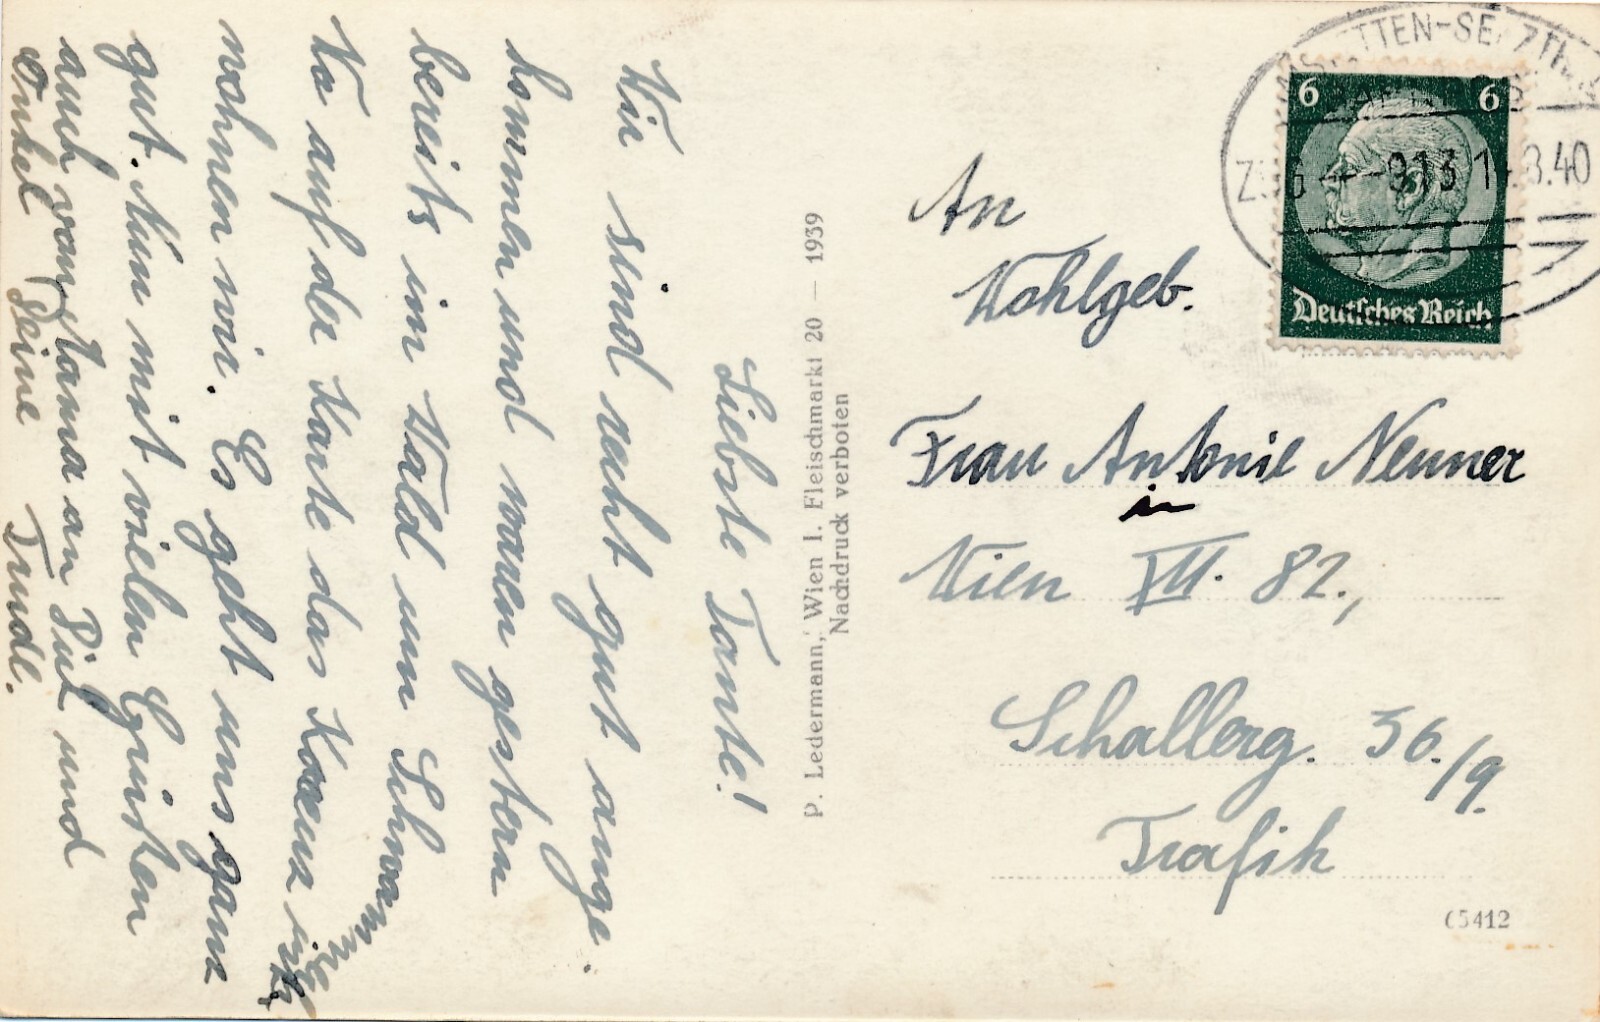 Liebste Tante!
Wir sind recht gut ange-
kommen und waren gestern
bereits im Wald um Schwämme
Wo auf der Karte das Kreuz ist,
wohnen wir. Es geht uns ganz
gut. Nun mit vielen Grüßen
auch von Mama an Dich und
Onkel Deine Trudl.
P. Ledermann, Wien I. Fleischmarkt 20 — 1939
Nachdruck verboten
TTEN-SE ZTH
9131 .8.40
6 6
Deutsches Reich
An
Wohlgeb.
Frau Antonie Neuner
in
Wien VII. 82.,
Schallerg. 36./9.
Trafik
65412